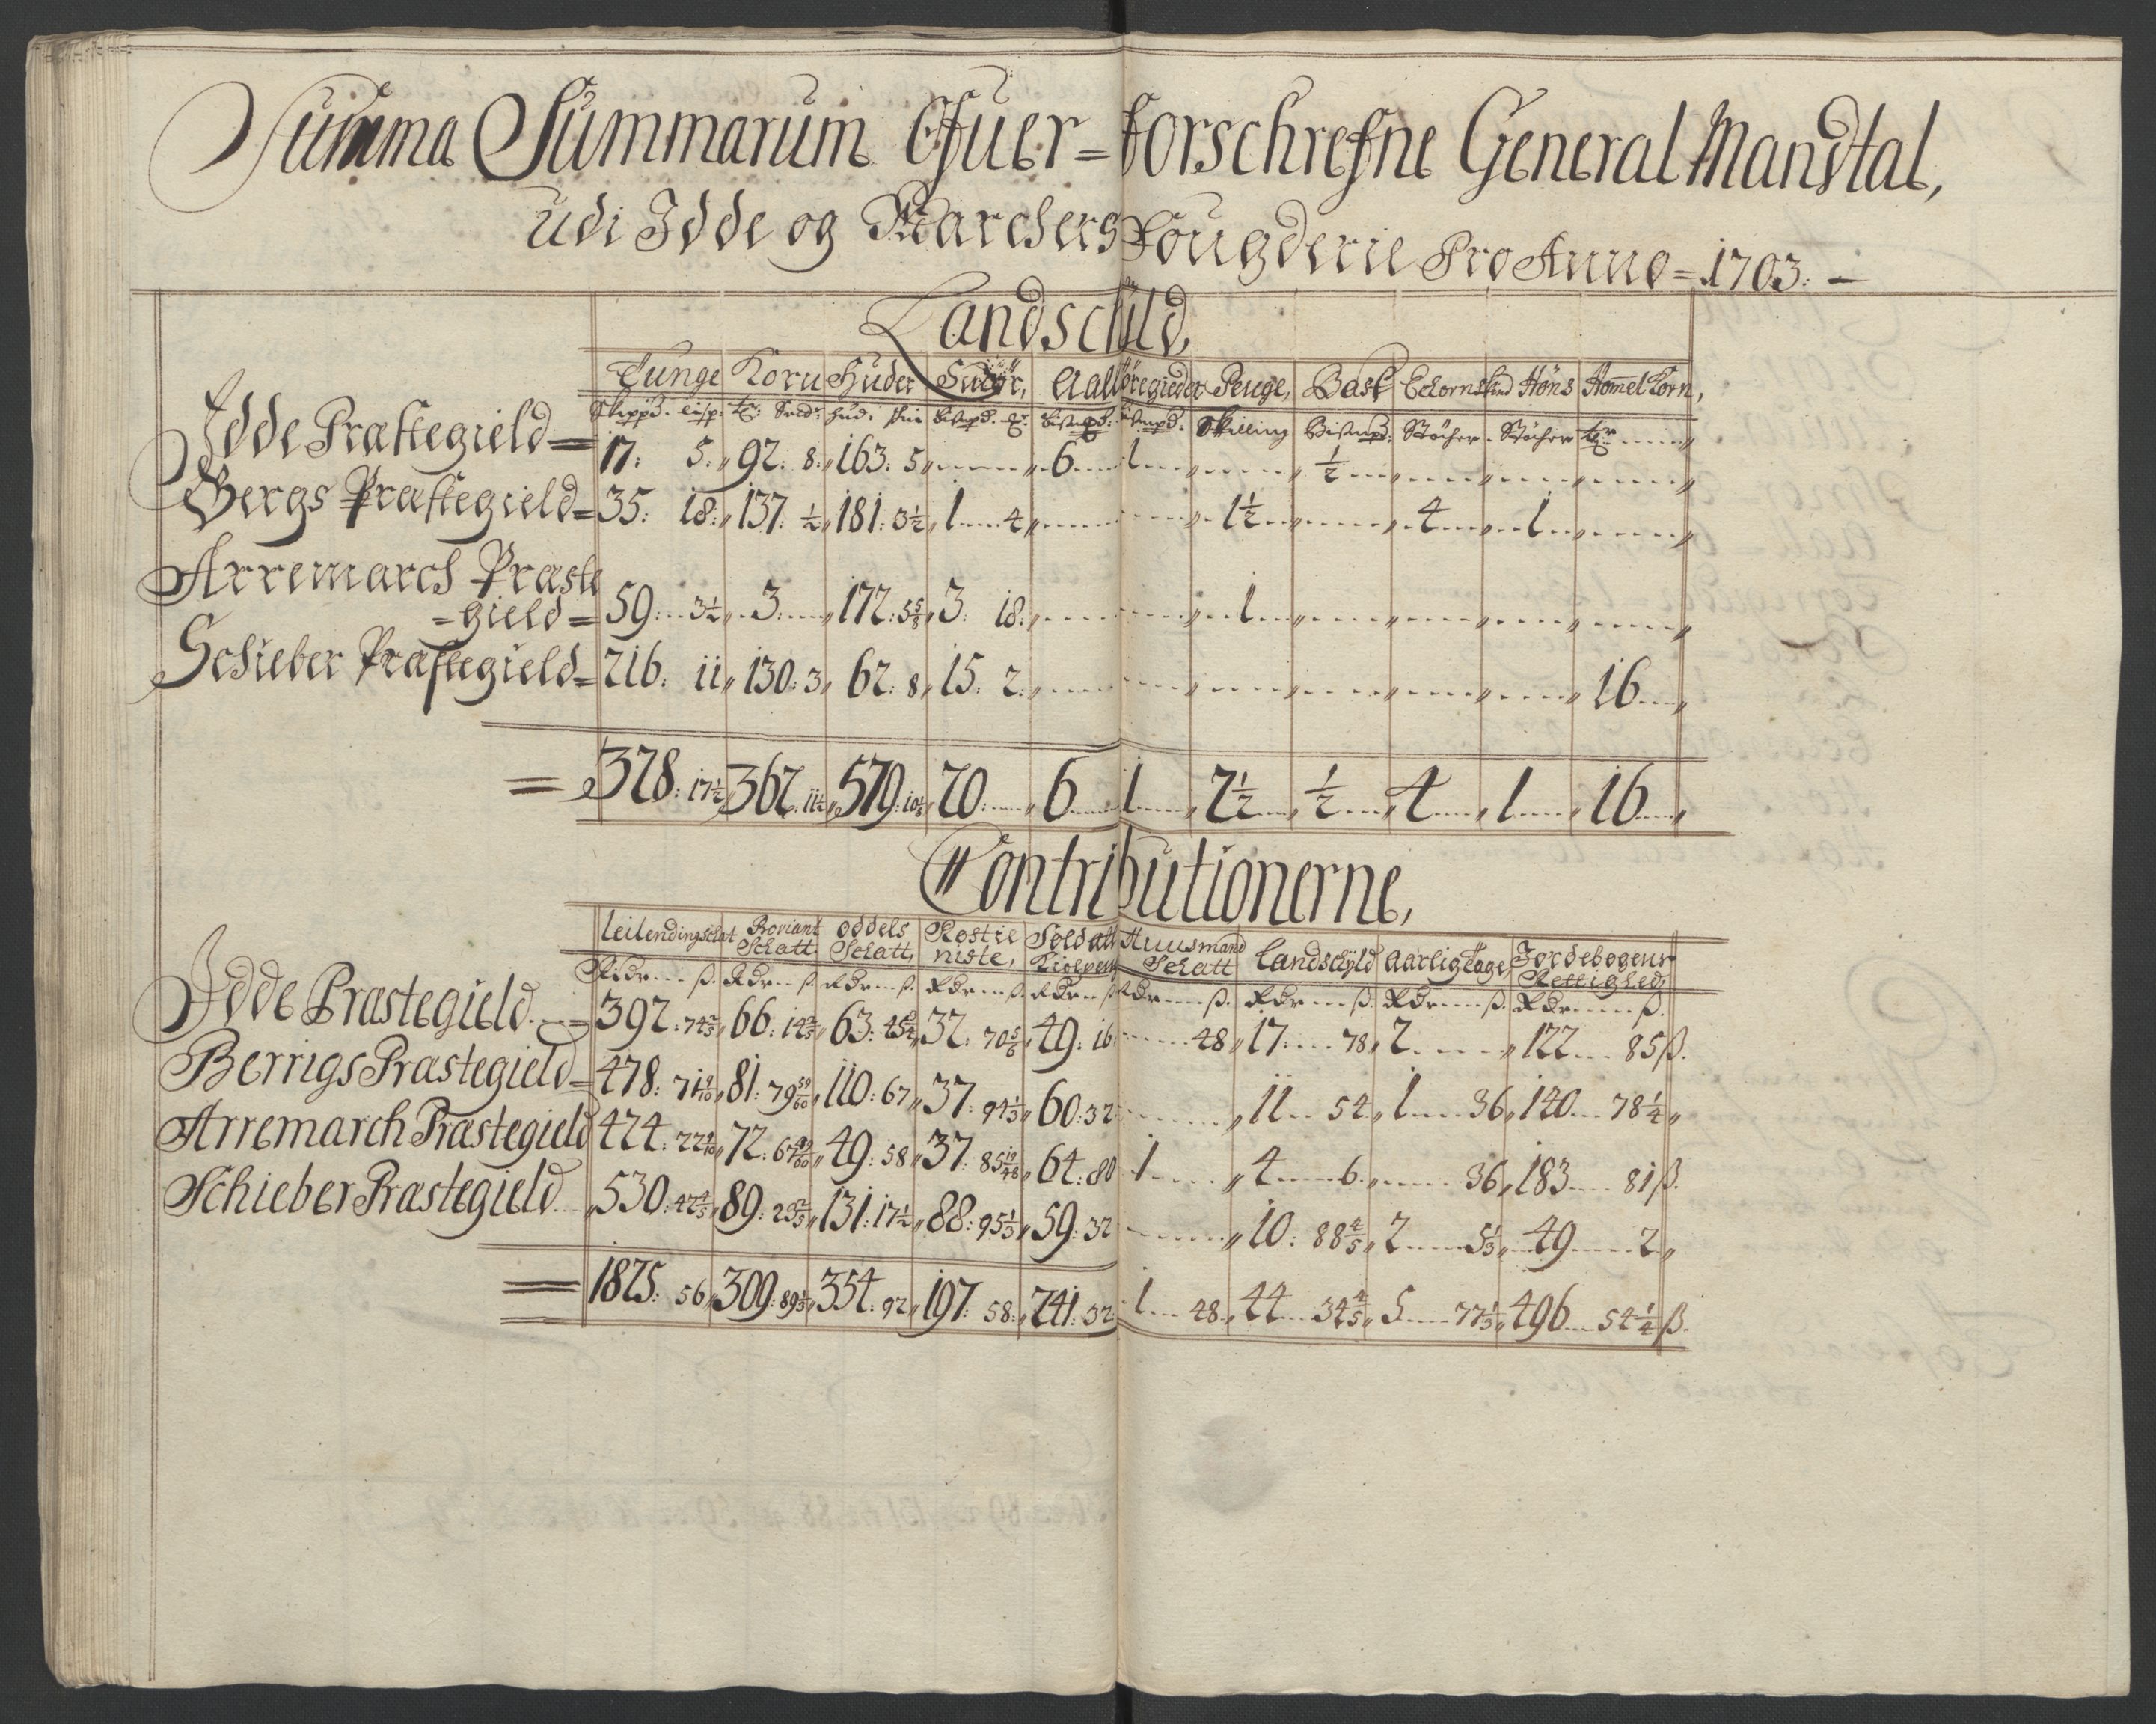 Summa Summarum Ofuer=forschrefne General Mandtal,
udi Idde og Marchers Fougderie Pro Anno = 1703. —
Landschild,
Tunge Korn Huder Smör, Aall Penge, Bast Eckornskind Höns Homel Korn,
Skippd. lisp. tr: Sed: hud. skin Bismpd. Bismpd. Bismpd. Skilling Bismpd. Stöcher. Stöcher tr
Idde Præstegield = 17: 5. 92: 8. 163: 5 6 1 ½
Bergs Præstegield = 35: 18. 137: ½ 181: 3½ 1 4 1½ 4 1
Arremarch Præste
=gield = 59: 3½ 3 172: 5⅝ 3: 18. 1
Schieber Præstegield = 216: 11 130: 3 62: 8 15: 2. 16
= 328: 17½ 362: 11½ 579: 10⅛ 20 6 1 2½ ½ 4 1 16
Contributionerne,
Leilendingschat Proviant Oddels Rostie Soldatt Huusmand Landschyld Aarlig Tage Jordebogens
Schatt Schatt, niste, Schatt Rettighed,
Rdr ß. Rdr ß. Rdr ß. Rdr ß. Rdr ß Rdr ß. Rdr ß. Rdr ß. Rdr ß.
Idde Præstegield = 392: 74⅖ 66: 14⅖ 63: 32: 70⅚ 49: 16 48 17 78 2 122 85 ß.
Berrigs Præstegield = 478: 71 9/10 81: 79 59/60 110: 67 37: 94⅓ 60: 32 11 54 1 36 140 78¼
Arremarch Præstegield 424: 22 9/10 72: 49: 58 37: 85 19/48 64: 80 1 4 6 36 183 81 ß.
Schieber Præstegield 530: 47⅘ 89: 23⅖ 131: 17½ 88: 95⅓ 59: 32 10: 88⅘ 2 5⅓ 49 2
= 1825: 56 309: 89⅓ 354: 92 197: 58 241: 32 1 48 44 34⅘ 5 77⅓ 496 54¼ ß.